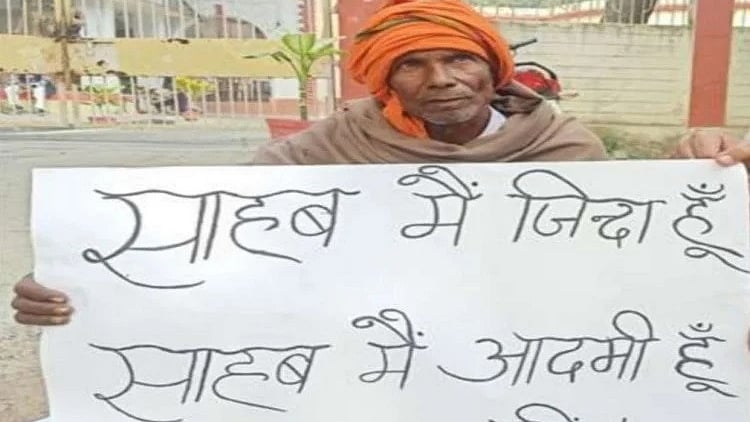 साहब मैं जिन्दा हूँ
साहब मैं आदमी हूँ